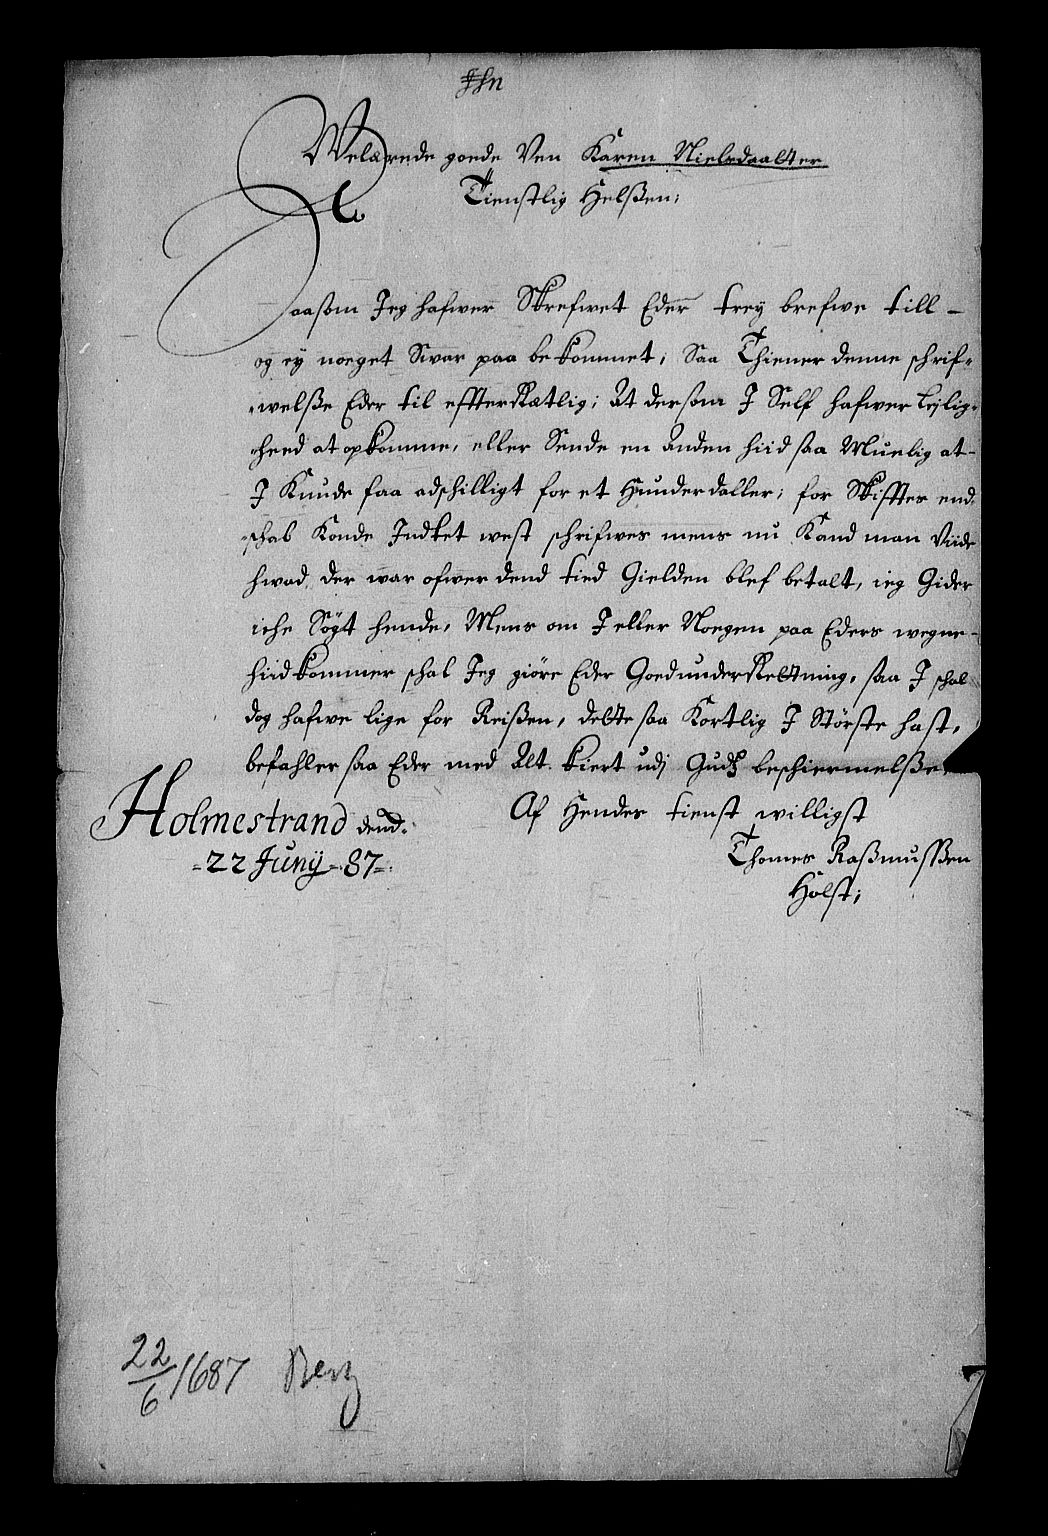 Welærede goede Ven Karen Nielsdaatter
Tienstlig Helßen;
Saasom Jeg hafwer Skrefwet Eder trey brefwe till -
og ey noeget Swar paa bekommet, Saa Thiener denne schrif=
=welße Eder til effterRætlig; At dersom J Self hafwer Lejlig=
=heed at opkomme, eller Sende en anden hiid saa Muelig at -
J Kunde faa adschilligt for et Hunderdaller; for Skifftes end=
=schab Konde Indtet west schrifwes mens nu Kand man Viide
hwad der war ofwer dend tied Gielden blef betalt, ieg Gider
iche Søgt hende, Mens om J eller Noegen paa Eders wegne -
hiid kommer schal Jeg giöre Eder Goed underRettning, saa J schal
dog hafwe lige for Reißen, dette saa Kortlig J Största hast,
befahler saa Eder med Alt kiert udj Gudß beschiermelße
Holmestrand dend.
=22 Junij = 87=
Af Hendes tienst willigst
Thomes Raßmußen
Holst;
22/6 1687 Berg